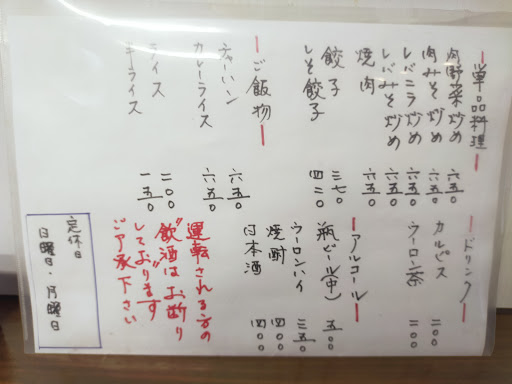 ー単品料理ー
肉野菜炒め 六五〇
肉みそ炒め 六五〇
レバニラ炒め 六五〇
レバみそ炒め 六五〇
焼肉 六五〇
餃子 三七〇
しそ餃子 四二〇
ーご飯物ー
チャーハン 六五〇
カレーライス 六五〇
ライス 二〇〇
半ライス 一五〇
ードリンクー
カルピス 二〇〇
ウーロン茶 二〇〇
ーアルコールー
瓶ビール(中) 五〇〇
ウーロンハイ 三五〇
焼酎 四〇〇
日本酒 四〇〇
運転される方の
"飲酒はお断り
しております"
ご了承下さい
定休日
日曜日・月曜日